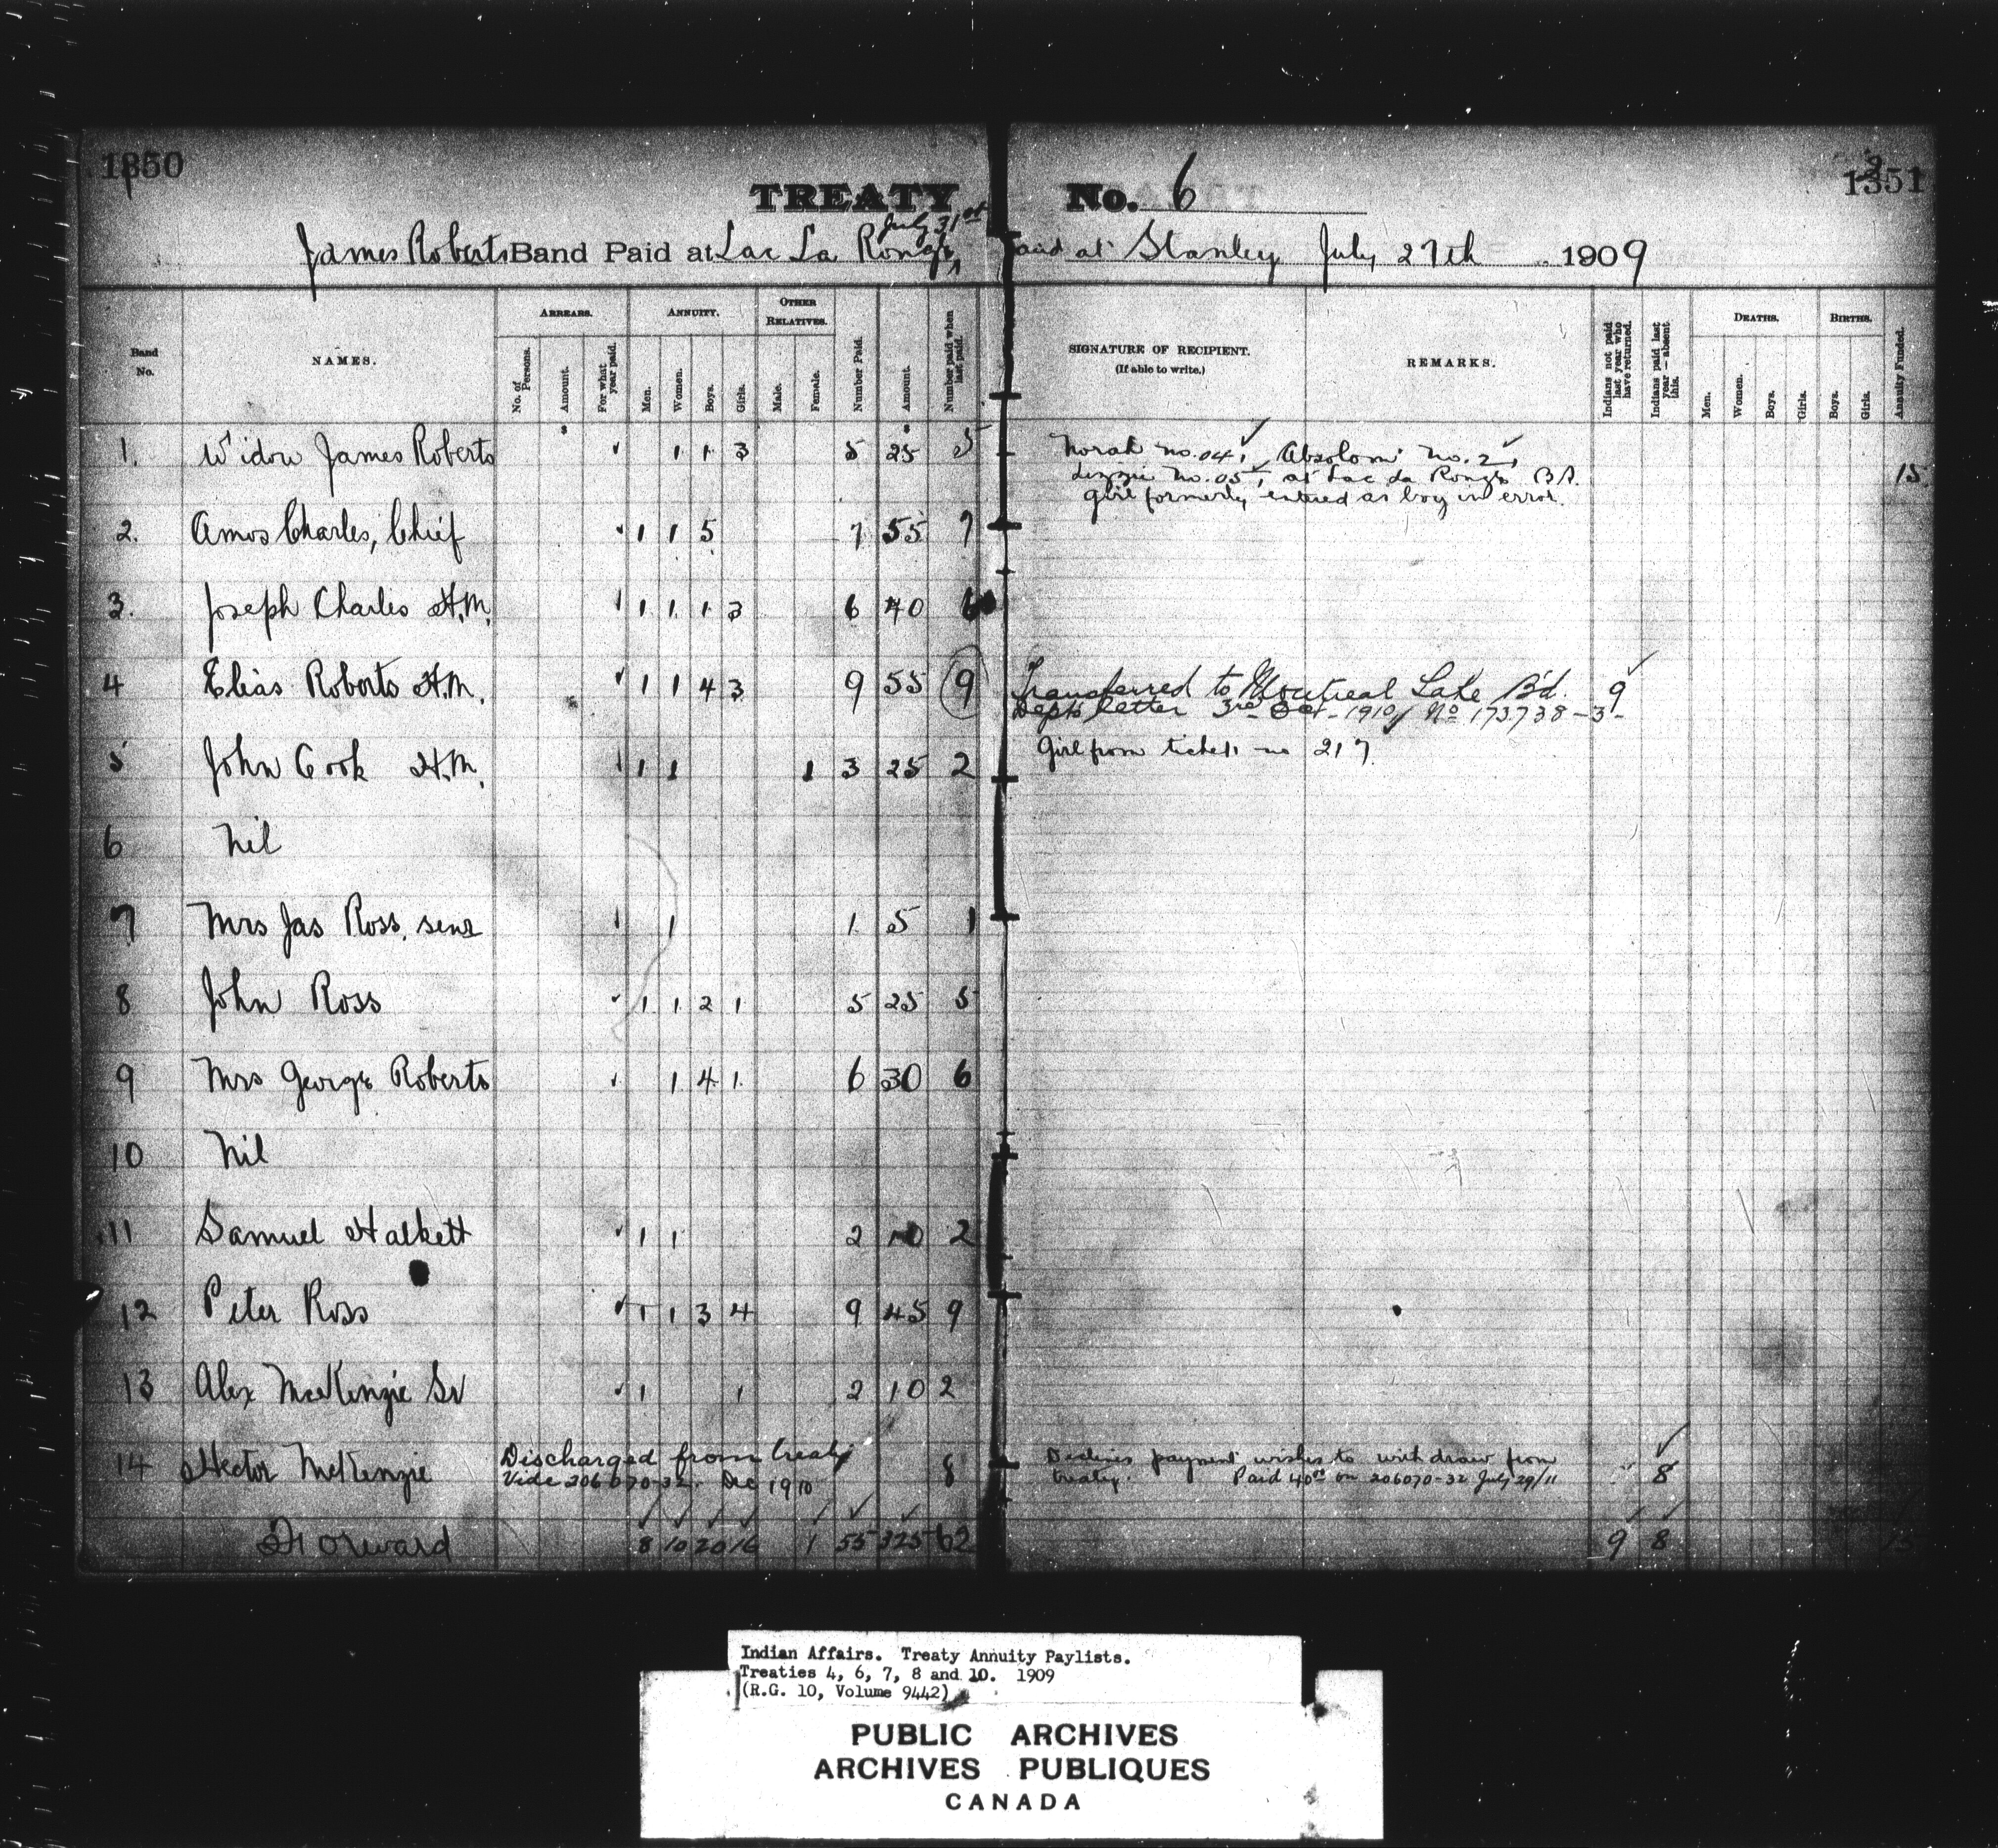 1350
1351
TREATY No. 6
July 31st
James Roberts Band Paid at Lac La Ronge, Paid at Stanley July 27th 1909
Band No.
NAMES.
ARREARS.
No. of Persons.
Amount.
For what year paid.
ANNUITY.
Men.
Women.
Boys.
Girls.
OTHER RELATIVES.
Male.
Female.
Number Paid.
Amount.
Number paid when last paid.
SIGNATURE OF RECIPIENT.
(If able to write.)
REMARKS.
Indians not paid last year who have returned.
Indians paid last year — absent this.
DEATHS.
Men.
Women.
Boys.
Girls.
BIRTHS.
Boys.
Girls.
Annuity Funded.
1. Widow James Roberts 1 1 3 5 25 5 Norah no. 04, Absolom no. 2, 15
Lizzie no. 05, at Lac La Ronge B.S.
girl formerly entered as boy in error.
2. Amos Charles, Chief 1 1 5 7 55 7
3. Joseph Charles H.M. 1 1 1 3 6 40 6
4 Elias Roberts H.M. 1 1 4 3 9 55 9 Transferred to Montreal Lake Bd. 9
Depts letter 3rd Oct - 1910 No 173738-3-
5 John Cook H.M. 1 1 1 3 25 2 Girl from ticket no 217
6 Nil
7 Mrs Jas Ross, senr 1 1 5 1
8 John Ross 1 1 2 1 5 25 5
9 Mrs George Roberts 1 4 1 6 30 6
10 Nil
11 Samuel Halkett 1 1 2 10 2
12 Peter Ross 1 1 3 4 9 45 9
13 Alex McKenzie Sr 1 1 2 10 2
14 Hector McKenzie Discharged from treaty 8 Declines payment wishes to withdraw from 8
Vide 206070-32. Dec 1910 treaty. Paid 40.00 on 206070-32 July 29/11
Forward 8 10 20 16 1 55 325 62 9 8 15
Indian Affairs. Treaty Annuity Paylists.
Treaties 4, 6, 7, 8 and 10. 1909
(R.G. 10, Volume 9442)
PUBLIC ARCHIVES
ARCHIVES PUBLIQUES
CANADA